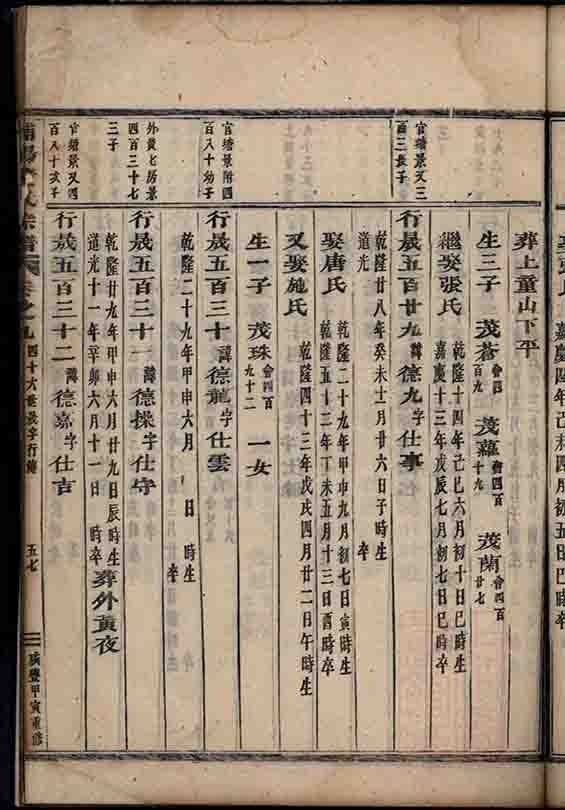 葬上童山下平
生三子　茂蒼會四百九　茂蘿會四百十九　茂蘭會四百廿七
繼娶張氏　乾隆十四年己巳六月初十日巳時生
嘉慶十三年戊辰七月初七日巳時卒
官塘景又三
酉三長子
行晟五百廿九諱德九字仕事
乾隆廿八年癸未十二月廿六日子時生
道光　卒
娶唐氏　乾隆二十九年甲申九月初七日寅時生
乾隆五十二年丁未五月十三日酉時卒
又娶施氏　乾隆四十三年戊戌四月廿二日午時生
生一子　茂珠會四百九十二　一女
官塘景附四
百八十幼子
行晟五百三十諱德龍字仕雲
乾隆二十九年甲申六月　日　時生
卒
外黃七房景
四百三十七
三子
行晟五百三十一諱德操字仕守
乾隆廿九年甲申六月廿九日辰時生
道光十一年辛卯六月十一日　時卒　葬外黃夜
官塘景又四
百八十次子
行晟五百三十二諱德嘉字仕吉
宗譜　卷之九　四十六世晟字行傳　五七　咸豐甲寅重修